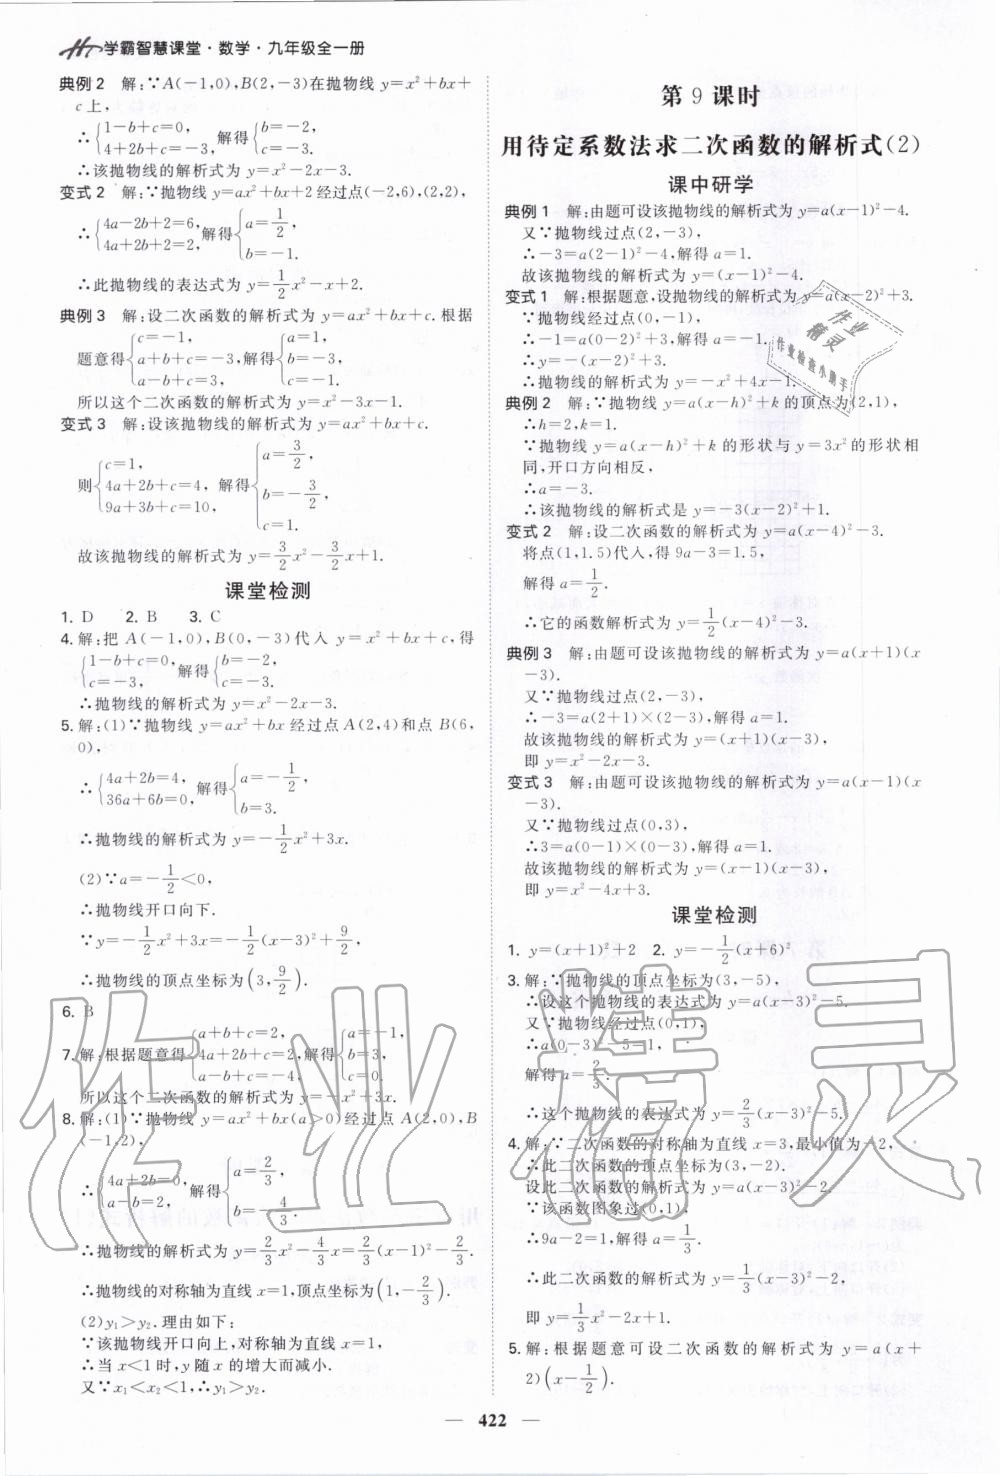 学霸智慧课堂·数学·九年级全一册
典例2 解:∵A(-1,0),B(2,-3)在抛物线 y=x²+bx+
c上,
∴{1-b+c=0, 4+2b+c=-3, 解得{b=-2, c=-3.
∴该抛物线的解析式为 y=x²-2x-3.
变式2 解:∵抛物线 y=ax²+bx+2 经过点(-2,6),(2,2),
∴{4a-2b+2=6, 4a+2b+2=2, 解得{a=1/2, b=-1.
∴此抛物线的表达式为 y=1/2x²-x+2.
典例3 解:设二次函数的解析式为 y=ax²+bx+c. 根据
题意得{c=-1, a+b+c=-3, a-b+c=3, 解得{a=1, b=-3, c=-1.
所以这个二次函数的解析式为 y=x²-3x-1.
变式3 解:设该抛物线的解析式为 y=ax²+bx+c.
则{c=1, 4a+2b+c=4, 9a+3b+c=10, 解得{a=3/2, b=-3/2, c=1.
故该抛物线的解析式为 y=3/2x²-3/2x+1.
课堂检测
1. D 2. B 3. C
4. 解:把 A(-1,0),B(0,-3)代入 y=x²+bx+c,得
{1-b+c=0, c=-3, 解得{b=-2, c=-3.
∴抛物线的解析式为 y=x²-2x-3.
5. 解:(1)∵抛物线 y=ax²+bx 经过点 A(2,4)和点 B(6,
0),
∴{4a+2b=4, 36a+6b=0, 解得{a=-1/2, b=3.
∴抛物线的解析式为 y=-1/2x²+3x.
(2)∵a=-1/2<0,
∴抛物线开口向下.
∵y=-1/2x²+3x=-1/2(x-3)²+9/2,
∴抛物线的顶点坐标为(3,9/2).
6. B
7. 解:根据题意得{a+b+c=2, 4a+2b+c=2, a-b+c=-4, 解得{a=-1, b=3, c=0.
所以这个二次函数的解析式为 y=-x²+3x.
8. 解:(1)∵抛物线 y=ax²+bx(a>0)经过点 A(2,0),B
(-1,2),
∴{4a+2b=0, a-b=2, 解得{a=2/3, b=-4/3.
∴抛物线的解析式为 y=2/3x²-4/3x=2/3(x-1)²-2/3.
∴抛物线的对称轴为直线 x=1,顶点坐标为(1,-2/3).
(2)y₁>y₂. 理由如下:
∵该抛物线开口向上,对称轴为直线 x=1,
∴当 x<1 时,y 随 x 的增大而减小.
又∵x₁<x₂<1,∴y₁>y₂.
第 9 课时
用待定系数法求二次函数的解析式(2)
课中研学
典例1 解:由题可设该抛物线的解析式为 y=a(x-1)²-4.
又∵抛物线过点(2,-3),
∴-3=a(2-1)²-4,解得 a=1.
故该抛物线的解析式为 y=(x-1)²-4.
变式1 解:根据题意,设抛物线的解析式为 y=a(x-2)²+3.
∵抛物线经过点(0,-1),
∴-1=a(0-2)²+3,解得 a=-1.
∴y=-(x-2)²+3.
∴抛物线的解析式为 y=-x²+4x-1.
典例2 解:∵抛物线 y=a(x-h)²+k 的顶点为(2,1),
∴h=2,k=1.
∵抛物线 y=a(x-h)²+k 的形状与 y=3x² 的形状相
同,开口方向相反,
∴a=-3.
∴该抛物线的解析式是 y=-3(x-2)²+1.
变式2 解:设二次函数的解析式为 y=a(x-4)²-3.
将点(1,1.5)代入,得 9a-3=1.5,
解得 a=1/2.
∴它的函数解析式为 y=1/2(x-4)²-3.
典例3 解:由题可设该抛物线的解析式为 y=a(x+1)(x
-3).
又∵抛物线过点(2,-3),
∴-3=a(2+1)×(2-3),解得 a=1.
故该抛物线的解析式为 y=(x+1)(x-3),
即 y=x²-2x-3.
变式3 解:由题可设该抛物线的解析式为 y=a(x-1)(x
-3).
又∵抛物线过点(0,3),
∴3=a(0-1)×(0-3),解得 a=1.
故该抛物线的解析式为 y=(x-1)(x-3),
即 y=x²-4x+3.
课堂检测
1. y=(x+1)²+2 2. y=-1/2(x+6)²
3. 解:∵抛物线的顶点坐标为(3,-5),
∴设这个抛物线的表达式为 y=a(x-3)²-5.
又∵抛物线经过点(0,1),
∴a(0-3)²-5=1,
解得 a=2/3.
∴这个抛物线的表达式为 y=2/3(x-3)²-5.
4. 解:∵二次函数的对称轴为直线 x=3,最小值为-2,
∴此二次函数的顶点坐标为(3,-2).
设此二次函数的解析式为 y=a(x-3)²-2.
∵该函数图象过(0,1),
∴9a-2=1,解得 a=1/3.
∴此二次函数的解析式为 y=1/3(x-3)²-2,
即 y=1/3x²-2x+1.
5. 解:根据题意可设二次函数的解析式为 y=a(x+
2)(x-1/2).
— 422 —
作业
精灵
作业检查小助手
作业精灵